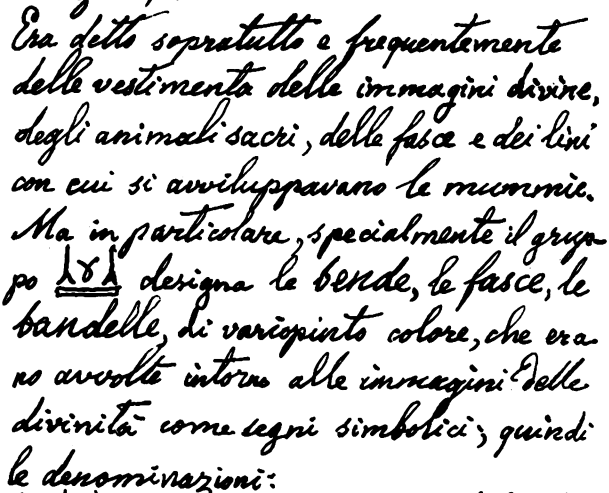 Era detto sopratutto e frequentemente
delle vestimenta delle immagini divine,
degli animali sacri, delle fasce e dei lini
con cui si avviluppavano le mummie.
Ma in particolare, specialmente il grup-
po designa le bende, le fasce, le
bandelle, di variopinto colore, che era-
no avvolte intorno alle immagini delle
divinità come segni simbolici; quindi
le denominazioni: